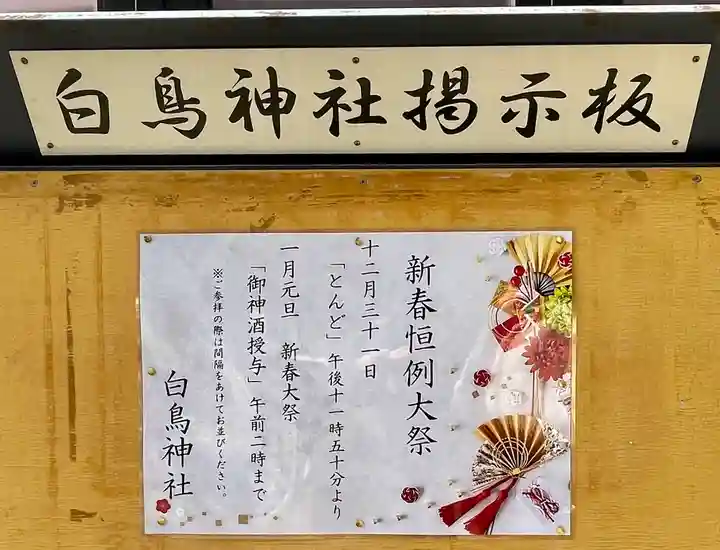 白鳥神社掲示板
新春恒例大祭
十二月三十一日
「とんど」午後十一時五十分より
一月元旦 新春大祭
「御神酒授与」午前二時まで
※ご参拝の際は間隔をあけてお並びください。
白鳥神社